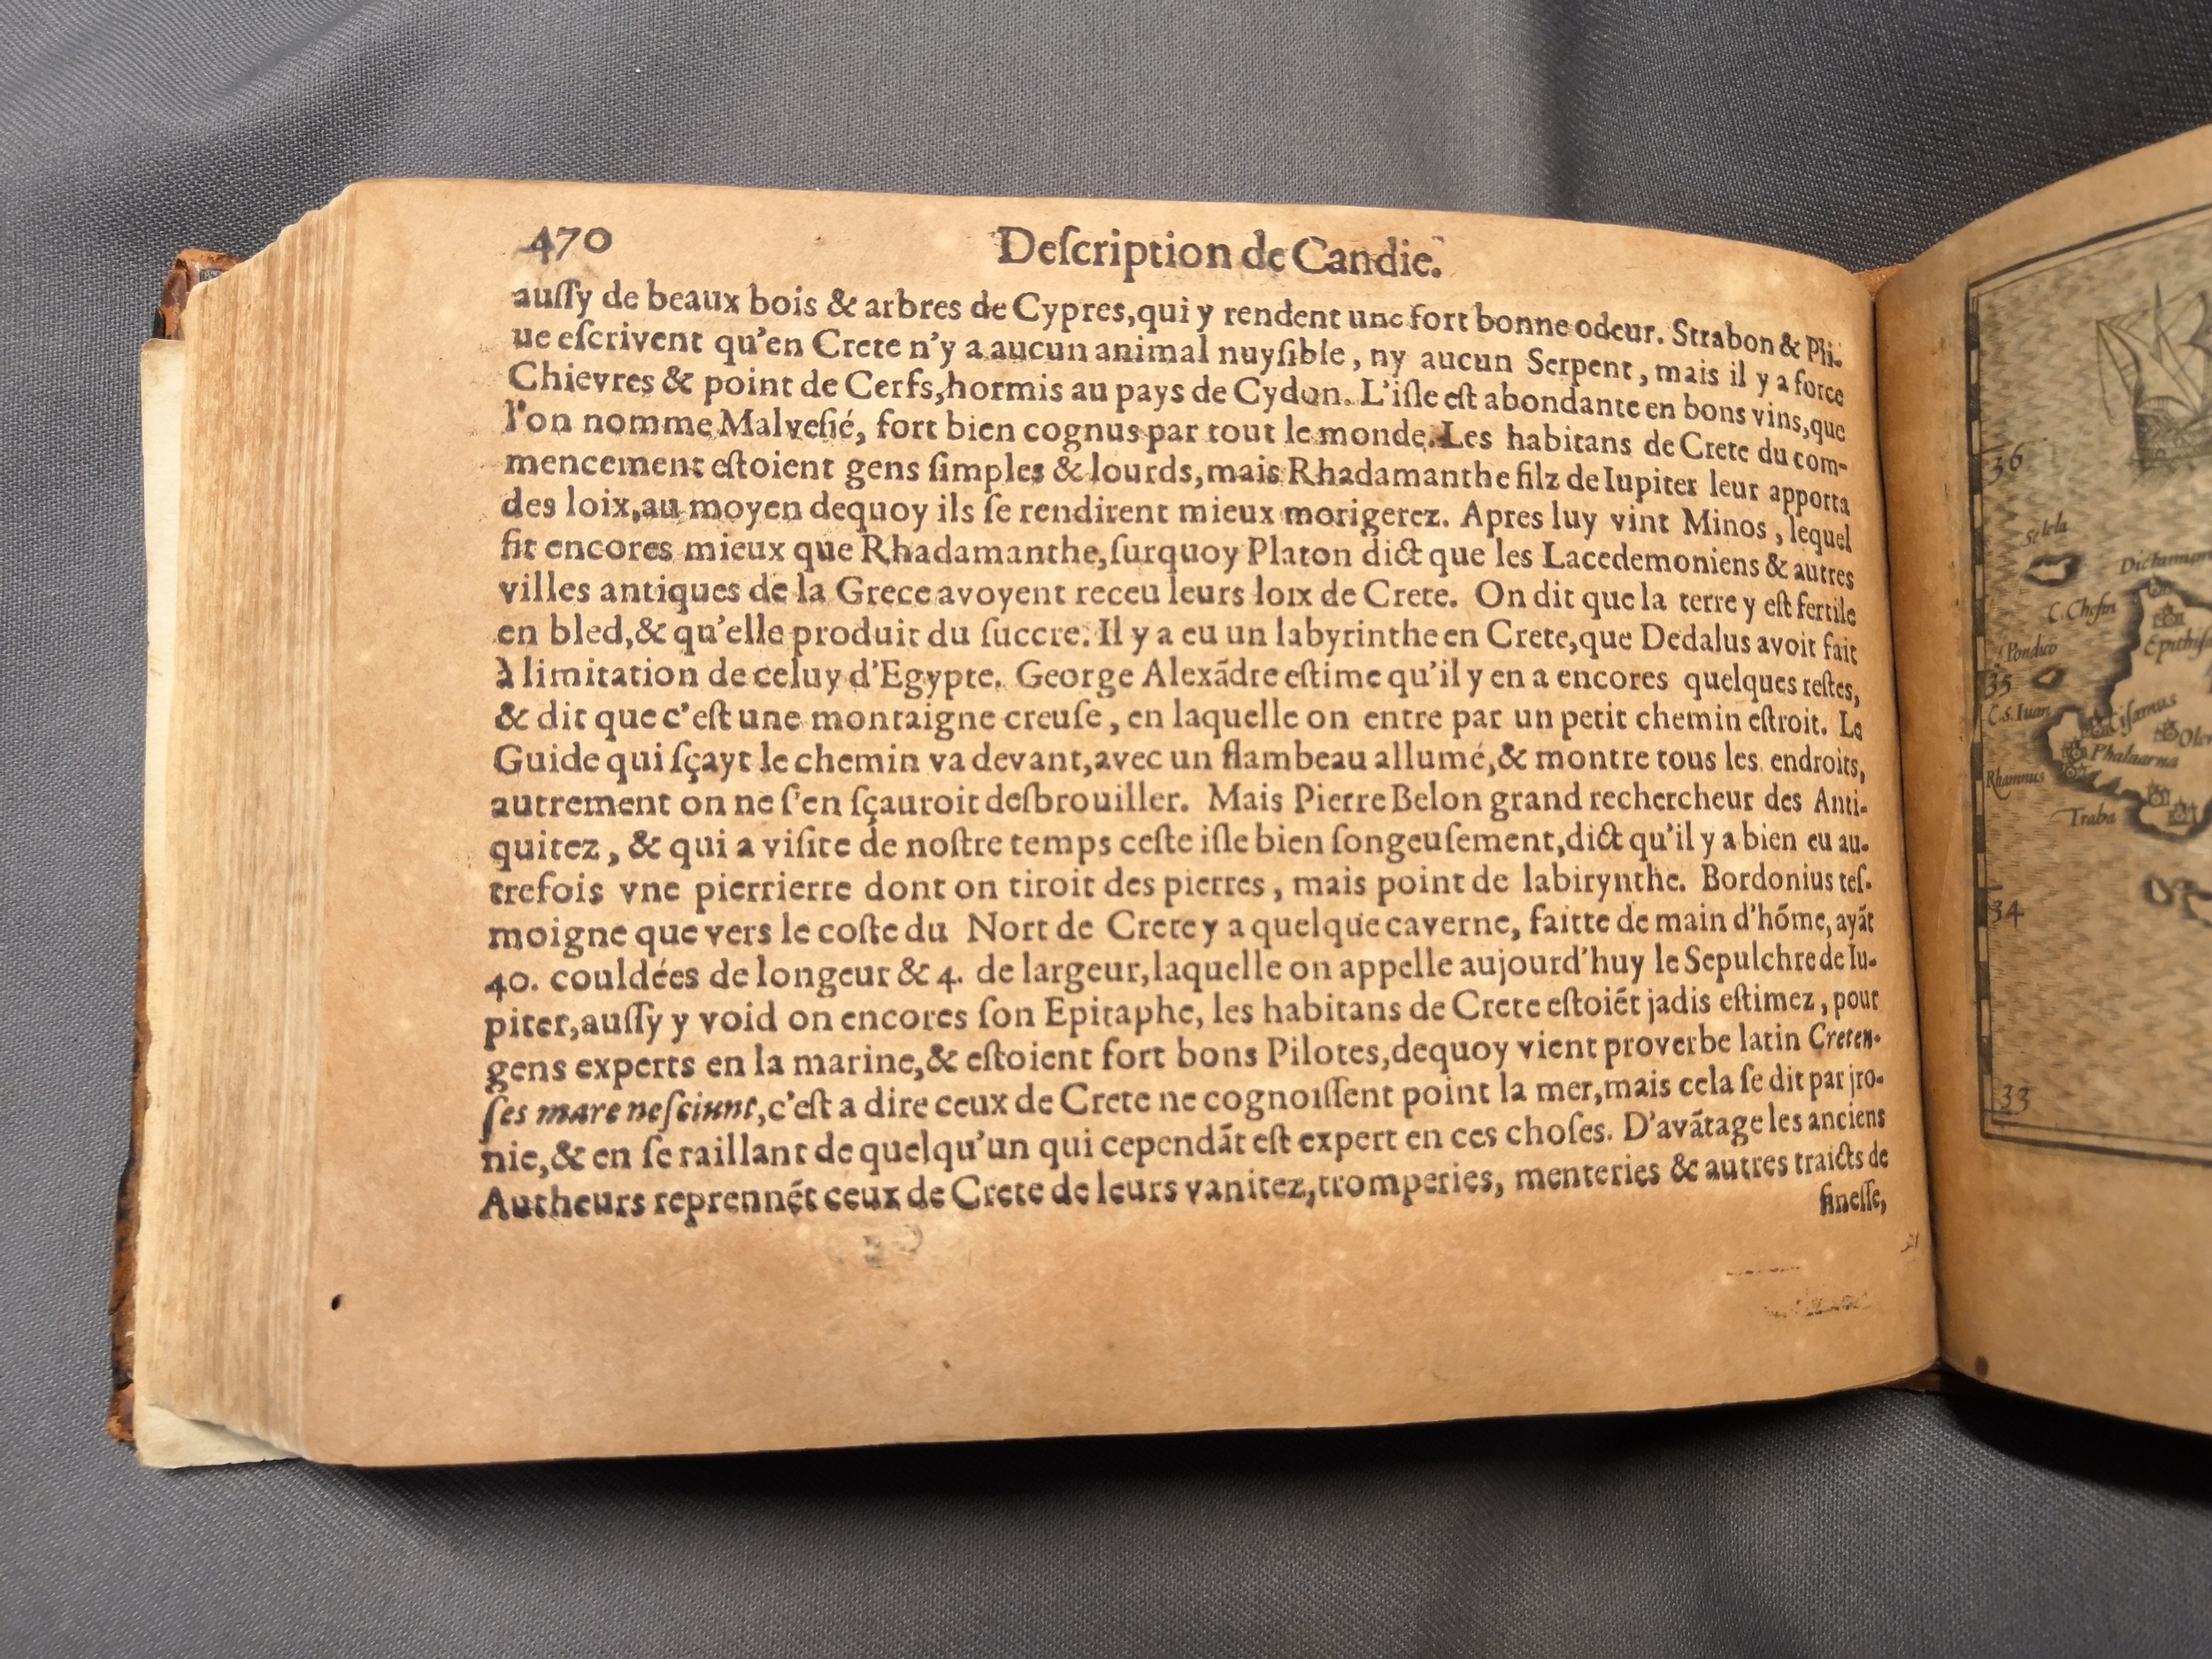 470
Deſcription de Candie.
auſſy de beaux bois & arbres de Cypres,qui y rendent une fort bonne odeur. Strabon & Pli-
ue eſcrivent qu'en Crete n'y a aucun animal nuyſible, ny aucun Serpent, mais il y a force
Chievres & point de Cerfs,hormis au pays de Cydon. L'iſle eſt abondante en bons vins,que
l'on nomme Malveſié, fort bien cognus par tout le monde. Les habitans de Crete du com-
mencement eſtoient gens ſimples & lourds,mais Rhadamanthe filz de Iupiter leur apporta
des loix,au moyen dequoy ils ſe rendirent mieux morigerez. Apres luy vint Minos, lequel
fit encores mieux que Rhadamanthe,ſurquoy Platon dict que les Lacedemoniens & autres
villes antiques de la Grece avoyent receu leurs loix de Crete. On dit que la terre y eſt fertile
en bled,& qu'elle produit du ſuccre. Il y a eu un labyrinthe en Crete,que Dedalus avoit fait
à limitation de celuy d'Egypte. George Alexãdre eſtime qu'il y en a encores quelques reſtes,
& dit que c'eſt une montaigne creuſe, en laquelle on entre par un petit chemin eſtroit. Le
Guide qui ſçayt le chemin va devant,avec un flambeau allumé,& montre tous les endroits,
autrement on ne ſ'en ſçauroit deſbrouiller. Mais Pierre Belon grand rechercheur des Anti-
quitez, & qui a viſite de noſtre temps ceſte iſle bien ſongeuſement,dict qu'il y a bien eu au-
trefois vne pierrierre dont on tiroit des pierres, mais point de labirynthe. Bordonius teſ-
moigne que vers le coſte du Nort de Crete y a quelque caverne, faitte de main d'hõme, ayãt
40. couldées de longeur & 4. de largeur,laquelle on appelle aujourd'huy le Sepulchre de Iu-
piter,auſſy y void on encores ſon Epitaphe, les habitans de Crete eſtoiẽt jadis eſtimez, pour
gens experts en la marine,& eſtoient fort bons Pilotes,dequoy vient proverbe latin Creten-
ſes mare neſciunt,c'eſt a dire ceux de Crete ne cognoiſſent point la mer,mais cela ſe dit par jro-
nie,& en ſe raillant de quelqu'un qui cependãt eſt expert en ces choſes. D'avãtage les anciens
Autheurs reprennẽt ceux de Crete de leurs vanitez,tromperies, menteries & autres traicts de
fineſſe,
36
Selela
C. Chefin
Pondico
35
C.S. Iuan
Ciſamus
Phalaarna
Rhamnus
Traba
34
33